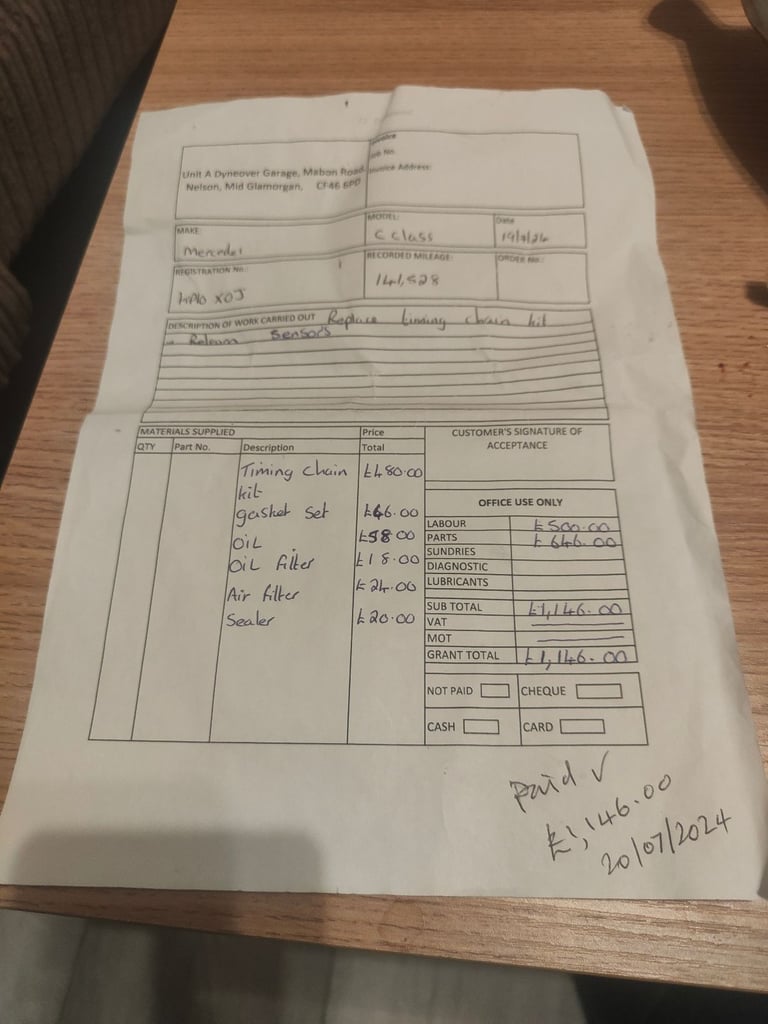 Invoice
Job No.
Invoice Address:
Unit A Dyneover Garage, Mabon Road,
Nelson, Mid Glamorgan, CF46 6PD
MAKE: MODEL: Date
Mercedes C Class
REGISTRATION No.: RECORDED MILEAGE: ORDER No.:
XOJ 141,528
DESCRIPTION OF WORK CARRIED OUT Replace timing chain kit
Sensors
MATERIALS SUPPLIED Price CUSTOMER'S SIGNATURE OF
ACCEPTANCE
QTY Part No. Description Total
Timing Chain £480.00
kit
gasket set £46.00
OIL £58.00
OIL filter £18.00
Air filter £24.00
Sealer £20.00
OFFICE USE ONLY
LABOUR £500.00
PARTS £646.00
SUNDRIES
DIAGNOSTIC
LUBRICANTS
SUB TOTAL £1,146.00
VAT
MOT
GRANT TOTAL £1,146.00
NOT PAID CHEQUE
CASH CARD
Paid ✓
£1,146.00
20/07/2024